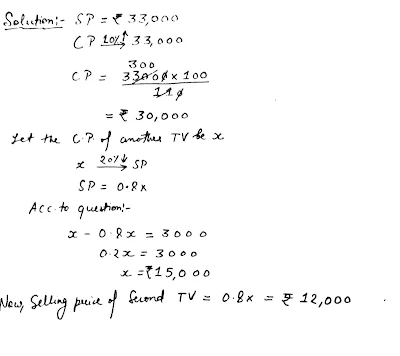 Solution:- SP = ₹ 33,000
CP 10%↑→ 33,000
300
CP = 33000 x 100
110
= ₹ 30,000
Let the C.P. of another TV be x
x 20%↓→ SP
SP = 0.8x
Acc. to question:-
x - 0.8x = 3000
0.2x = 3000
x = ₹15,000
Now, Selling price of Second TV = 0.8x = ₹ 12,000